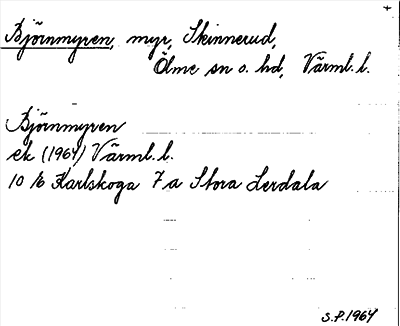 Björnmyren, myr, Skinnerud,
Ölme sn o. hd, Värml. l.
Björnmyren
ek (1964) Värml. l.
10 16 Karlskoga 7a Stora Lerdala
S.P. 1964